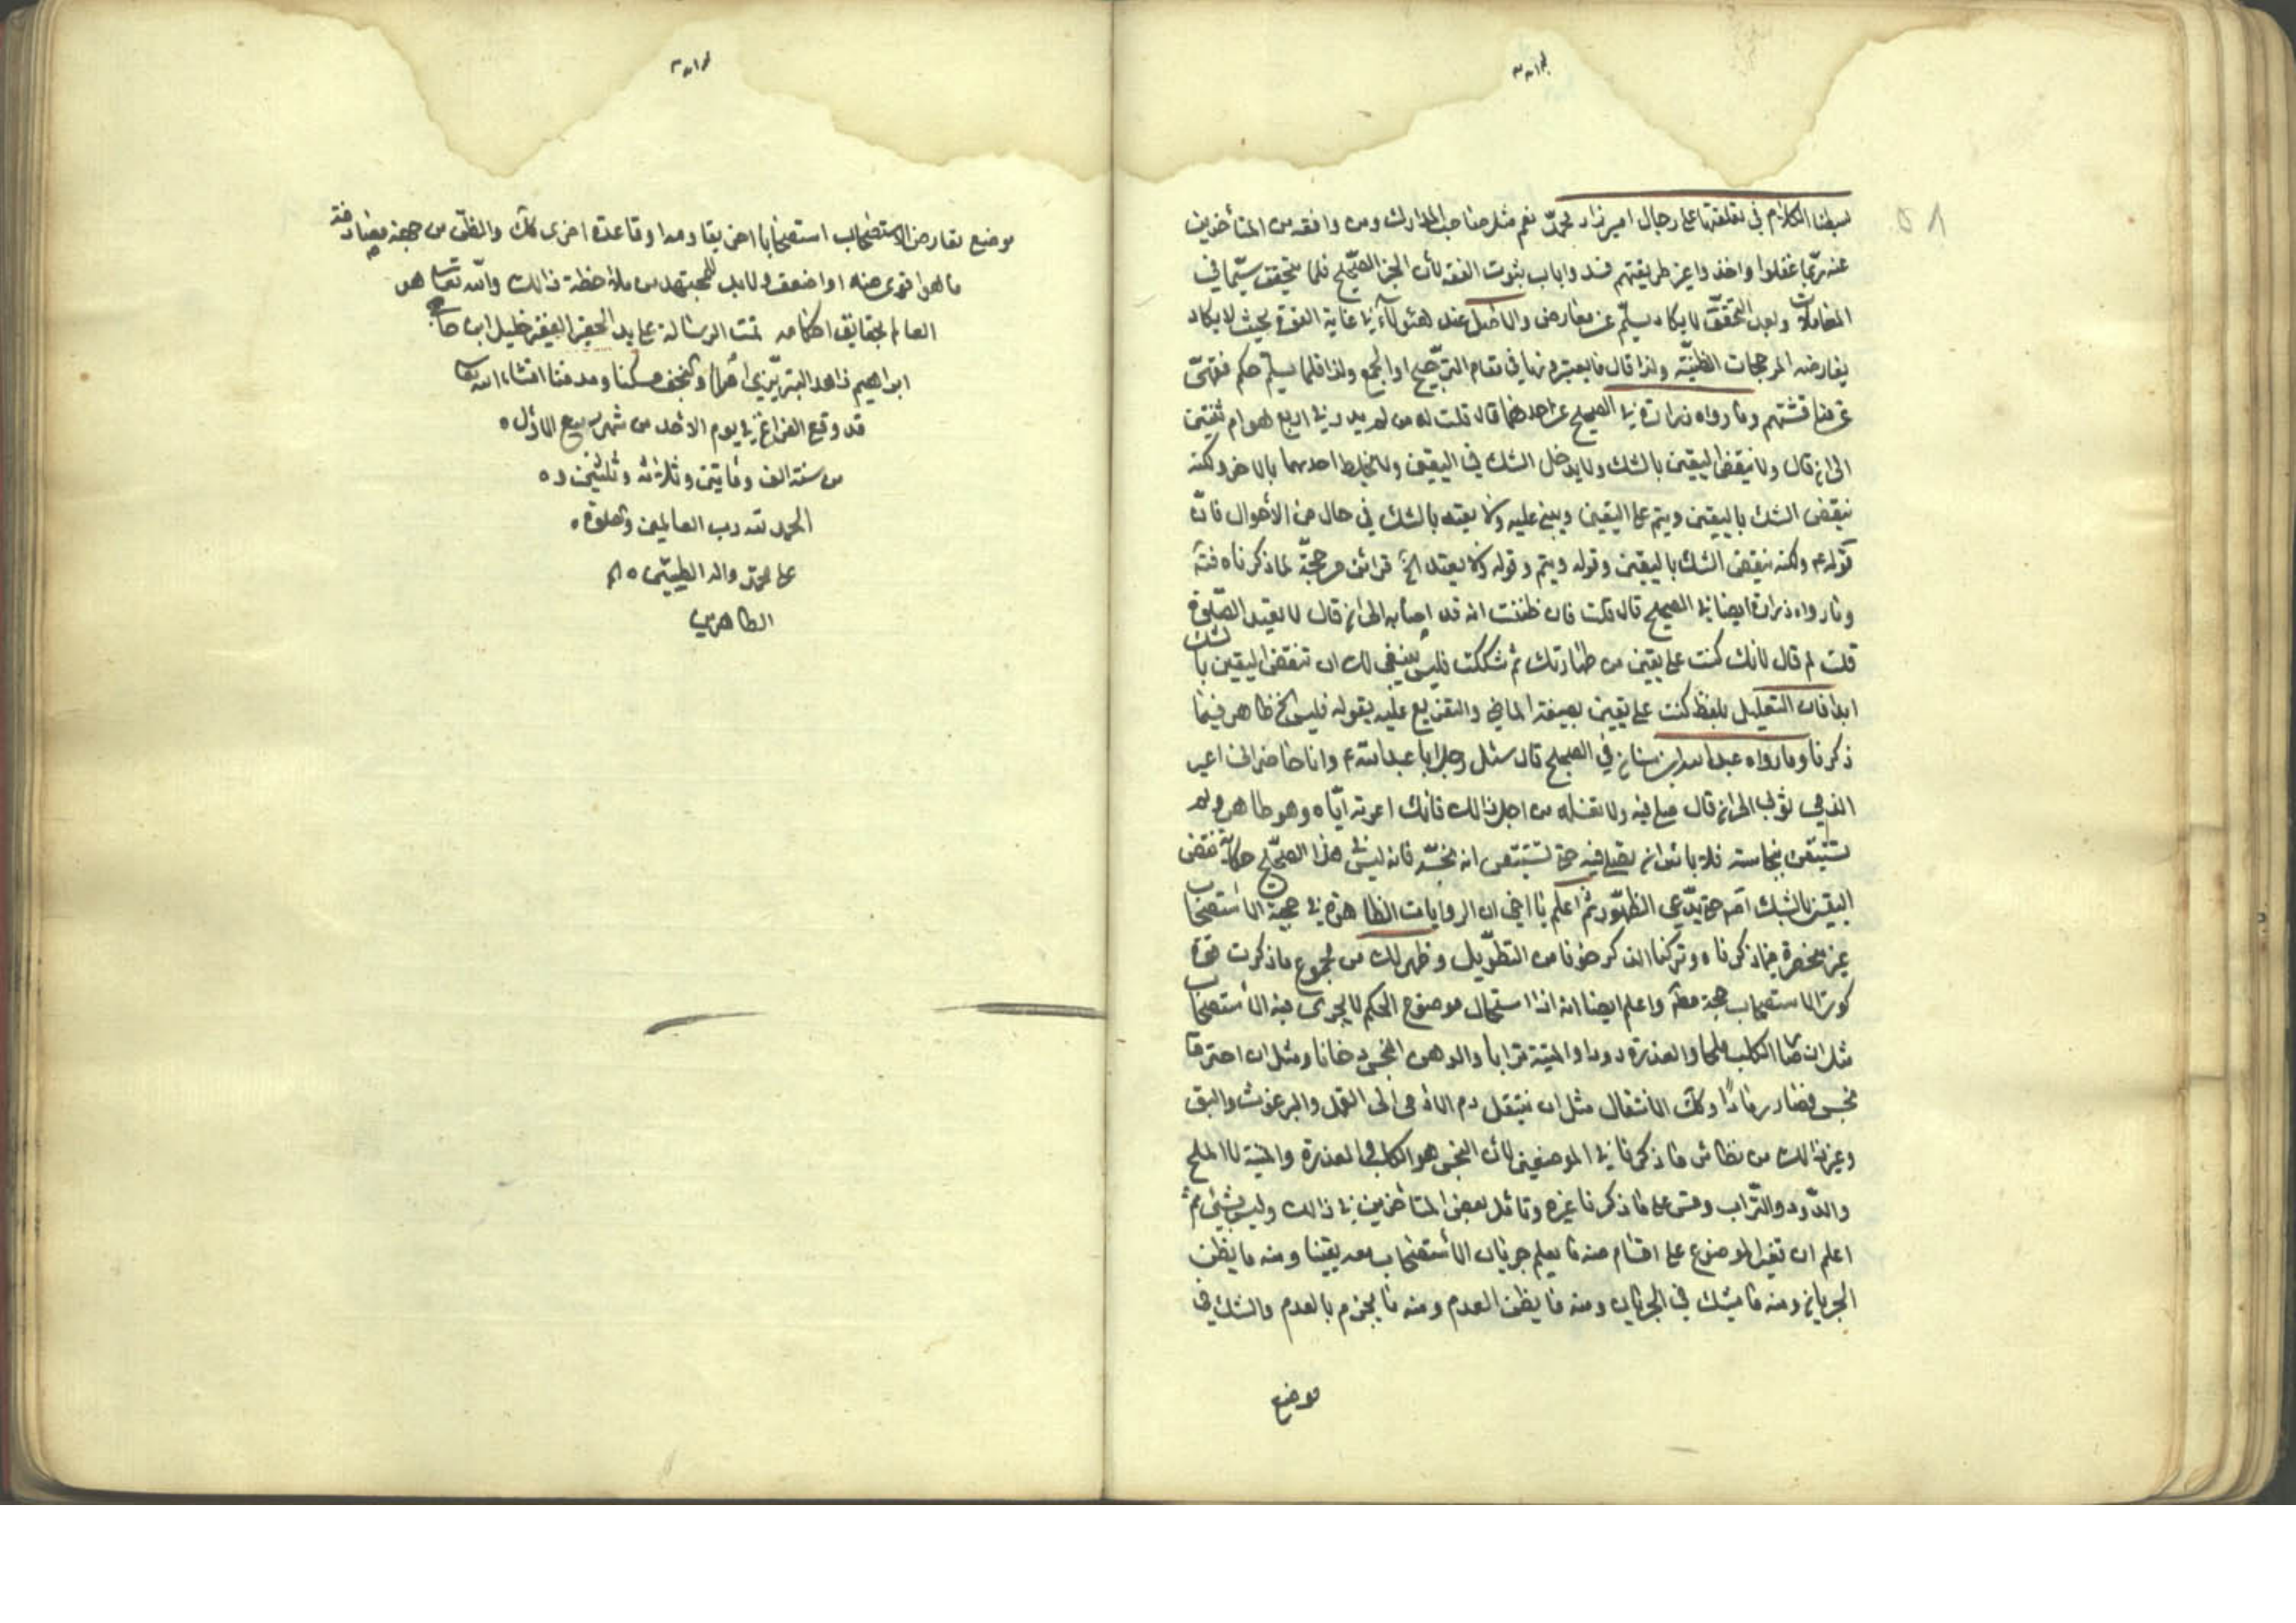 ٥٨
بسطنا الكلام في تعلقتها على رجال اميرزاد محمد نعم مثل صاحب المدارك ومن وافقه من المتأخرين
عنه ربما غفلوا واخذوا غير طريقتهم فسد واباب ثبوت الفقه لأن الخبر الصحيح قلما يتحقق سيما في
المعاملات وبعد التحقق لا يكاد يسلم عن معارض والاصل عند هؤلاء في غاية القوة بحيث لا يكاد
يعارضه المرجحات الظنية ولذا قال ما يعتبرونها في مقام الترجيح او الجمع ولذا قلما يسلم حكم فقهى
عن مناقشتهم وما رواه زرارة في الصحيح عن احدهما قال قلت له من لم يدر في اربع هو ام ثنتين
الى ان قال ولا ينقض اليقين بالشك ولا يدخل الشك في اليقين ولا يخلط احدهما بالاخر ولكنه
ينقض الشك باليقين ويتم على اليقين ويبنى عليه ولا يعتد بالشك في حال من الأحوال فان
قوله ع ولكنه ينقض الشك باليقين وقوله ويتم وقوله ولا يعتد الخ قرائن مرجحة لما ذكرناه فتا
وما رواه زرارة ايضا في الصحيح قال قلت فان ظننت انه قد اصابه الى ان قال لا تعيد الصلوة
قلت لم قال لانك كنت على يقين من طهارتك ثم شككت فليس ينبغي لك ان تنقض اليقين بالشك
ابدا فان التعليل بلفظ كنت على يقين بصيغة الماضي والتفريع عليه بقوله فليس الخ ظاهر فيما
ذكرنا وما رواه عبد الله ابن سنان في الصحيح قال سئل رجل ابا عبد الله ع وانا حاضر انى اعير
الذمي ثوبى الى ان قال صل فيه ولا تغسله من اجل ذالك فانك اعرته اياه وهو طاهر ولم
تستيقن نجاسته فلا باس ان تصلى فيه حتى تستيقن انه نجسه فانه ليس في هذا الصحيح حكاية نقض
اليقين بالشك اه حتى يدعى الظهور ثم اعلم يا اخى ان الروايات الظاهرة في حجية الاستصحاب
غير منحصرة فيما ذكرناه وتركنا الذكر خوفا من التطويل وظهر لك من مجموع ما ذكرت قوة
كون الاستصحاب حجة مطه واعلم ايضا انه اذا استحال موضوع الحكم لا يجرى فيه الاستصحاب
مثل ان صا الكلب ملحا والعذرة دودا والميتة ترابا والدهن النجس دخانا ومثل ان احترقا
نجس فصار رمادا وكك الانتقال مثل ان ينتقل دم الادمى الى القمل والبرغوث والبق
وغير ذالك من نظائر ما ذكرنا في الموضعين لأن النجس هو الكلب والعذرة والميتة لا الملح
والدود والتراب وقس على ما ذكرنا غيره وتامل بعض المتاخرين في ذالك وليس بشيئ ثم
اعلم ان تغير الموضوع على اقسام منه ما يعلم جريان الاستصحاب معه يقينا ومنه ما يظن
الجريان ومنه ما يشك في الجريان ومنه ما يظن العدم ومنه ما يجزم بالعدم والشك في
موضع
موضع تعارض الاستصحاب استصحابا اخر يقاومه او قاعدة اخرى كك والظن من حجته
ما هو اقوى منه او اضعف ولا بد للمجتهد من ملاحظة ذالك والله تعالى هو
العالم بحقايق احكامه تمت الرسالة على يد الحقير الفقير خليل ابن حاج
ابراهيم زاهد التبريزي اصلا والنجف مسكنا ومدفنا انشاء الله تعا
قد وقع الفراغ في يوم الاحد من شهر ربيع الاول ه
من سنة الف وماتين وثلاثة وثلثين و ه
الحمد لله رب العالمين وصلوة ه
على محمد واله الطيبين ه
الطاهرين